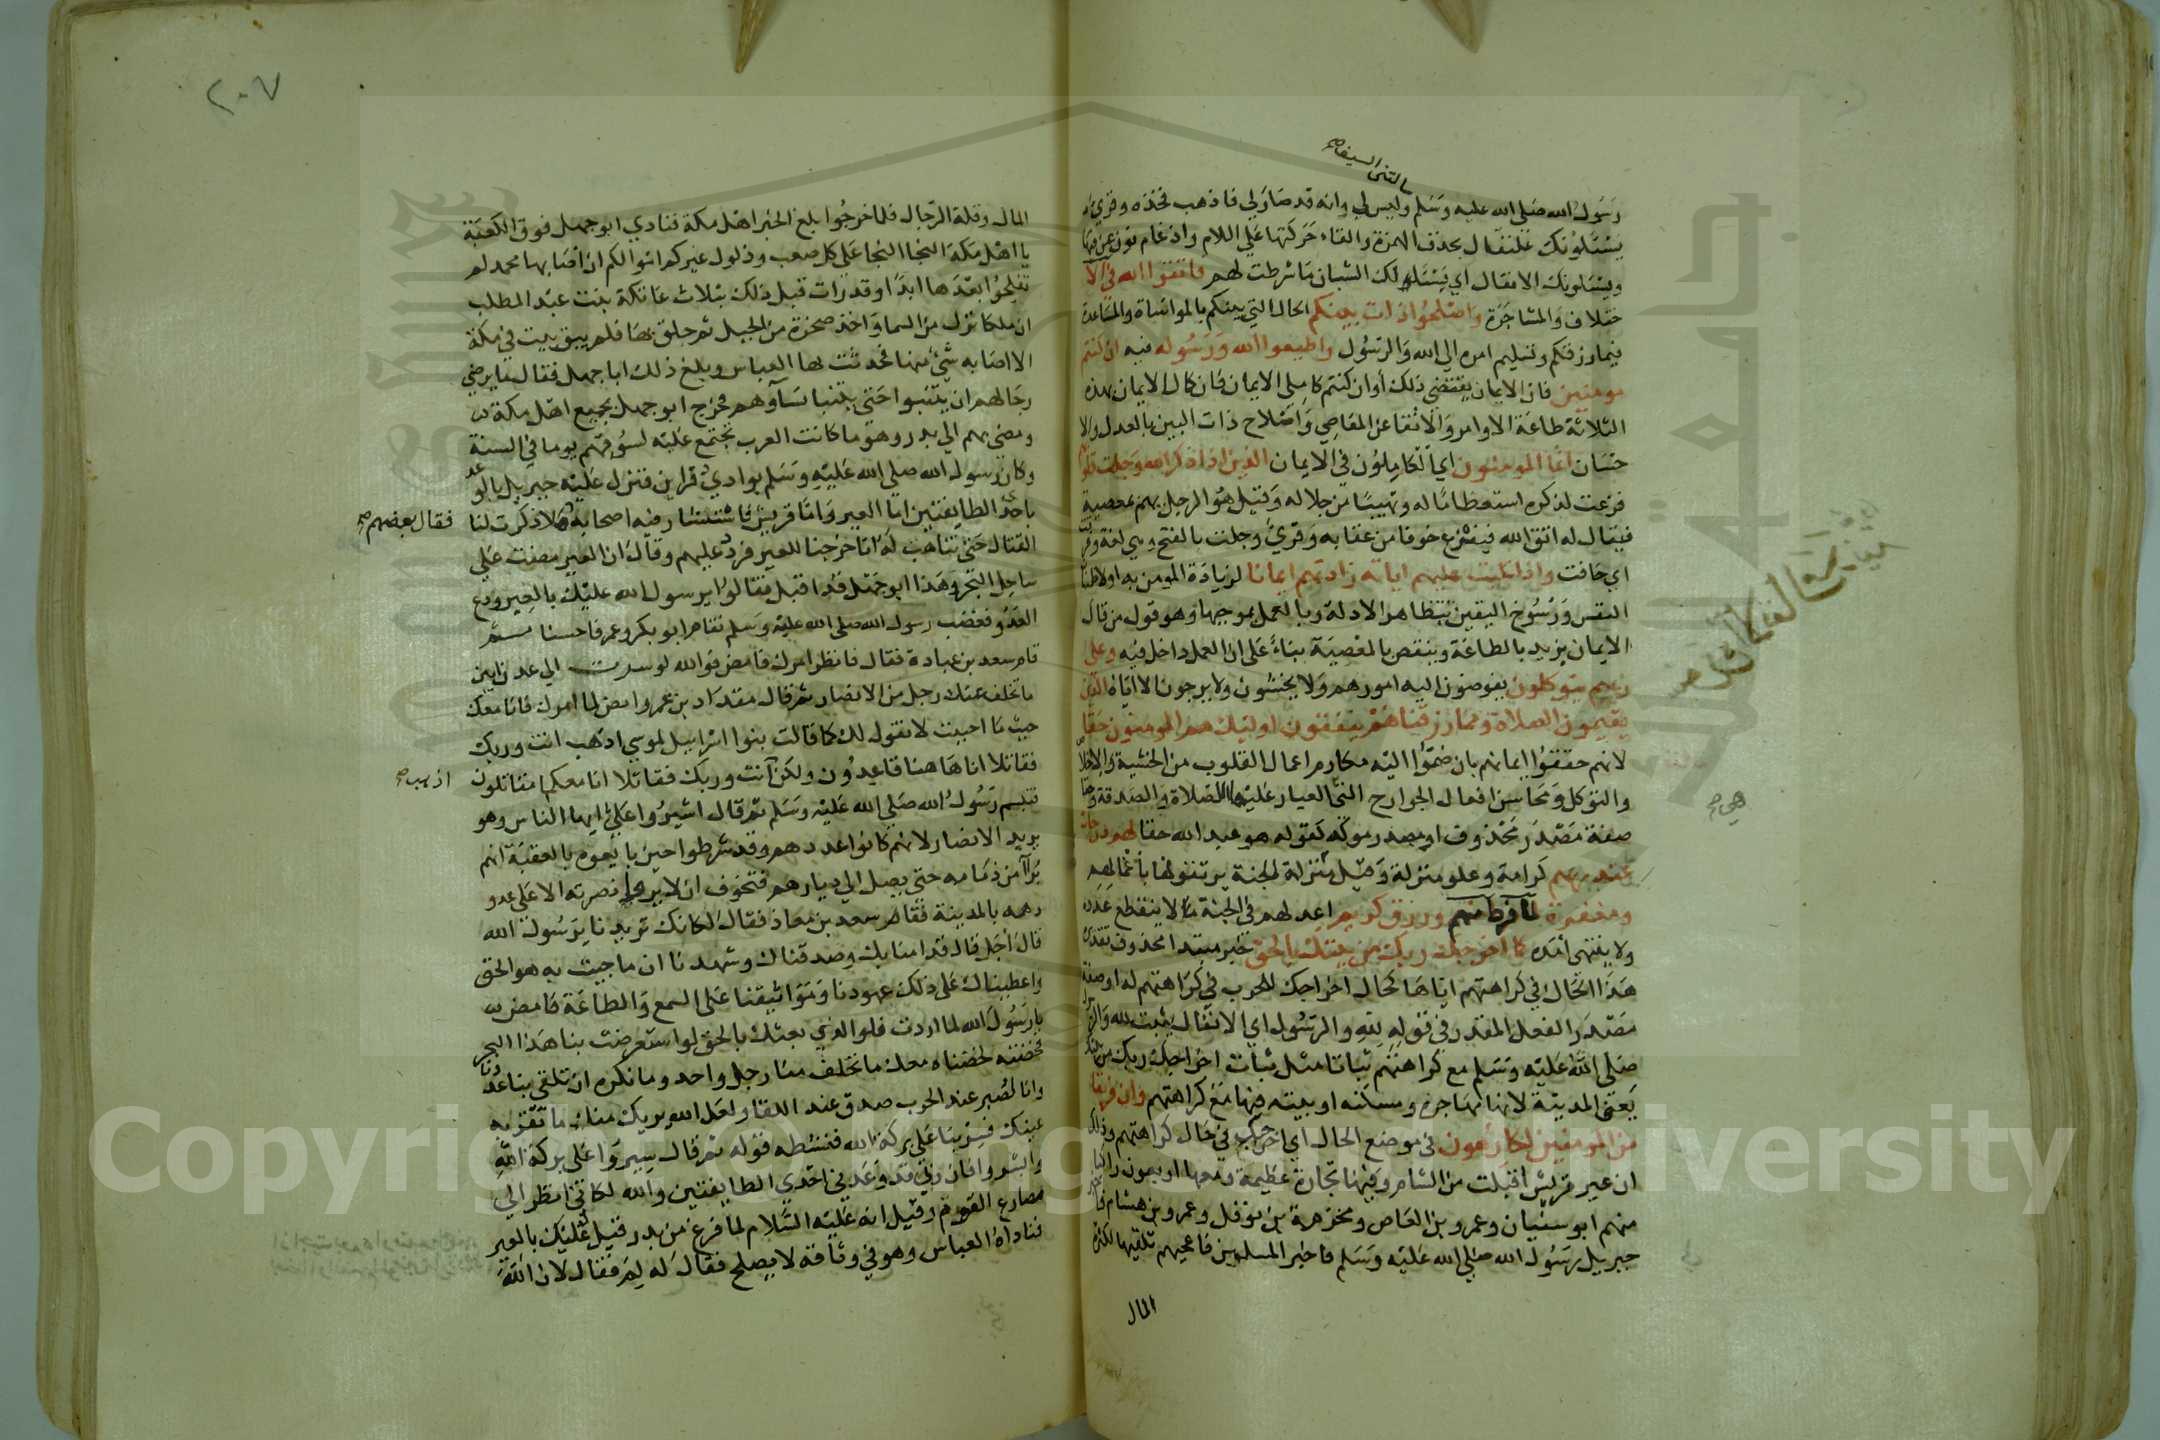 سالتنى السيف صح
رسول الله صلى الله عليه وسلم وليس لي وانه قد صار لي فاذهب فخذه وقرئ
يسئلونك علنفال بحذف الهمزة والقاء حركتها على اللام وادغام نون عن فيها
ويسئلونك الانفال اي يسئلك الشبان ما شرطت لهم فاتقوا الله في الا
ختلاف والمشاجرة واصلحوا ذات بينكم الحال التي بينكم بالمواساة والمساعدة
فيما رزقكم وتسليم امره الي الله والرسول واطيعوا الله ورسوله فيه ان كنتم
مومنين فان الايمان يقتضي ذلك أوان كنتم كاملي الايمان فان كمال الايمان بهذه
الثلاثة طاعة الاوامر والاتقا عن المعاصي واصلاح ذات البين بالعدل والا
حسان انما المومنون اي الكاملون في الايمان الذين اذا ذكر الله وجلت قلوبهم
فزعت لذكره استعظاما له وتهيبا من جلاله وقيل هو الرجل يهم بمعصية
فيقال له اتق الله فيفزع خوفا من عقابه وقرئ وجلت بالفتح وهي لغة وفرقت
اي خافت واذا تليت عليهم اياته زادتهم ايمانا لزيادة المومن به اولاطمئنان
النفس ورسوخ اليقين بتظاهر الادلة وبالعمل بموجبها وهو قول من قال
الايمان يزيد بالطاعة وينقص بالمعصية بناء على ان العمل داخل فيه وعلى
ربهم يتوكلون يفوضون اليه امورهم ولا يخشون ولا يرجون الا اياه الذين
يقيمون الصلاة ومما رزقناهم ينفقون اولئك هم المومنون حقا
لانهم حققوا ايمانهم بان ضموا اليه مكارم اعمال القلوب من الخشية والاخلاص
والتوكل ومحاسن افعال الجوارح التي العيار عليها الصلاة والصدقة وحقا
هي صح
صفة مصدر محذوف او مصدر موكد كقوله هو عبد الله حقا لهم درجات
عند ربهم كرامة وعلو منزلة وقيل منزلة الجنة يرتقونها باعمالهم
ومغفرة لما فرط منهم ورزق كريم اعد لهم في الجنة لا ينقطع عدده
ولا ينتهي أمده كما اخرجك ربك من بيتك بالحق خبر مبتدا محذوف تقديره
هذا الحال في كراهتهم اياها كحال اخراجك للحرب في كراهتهم له او صفة
مصدر الفعل المقدر في قوله لله والرسول اي الانفال يثبت لله والرسول
صلى الله عليه وسلم مع كراهتهم ثباتا مثل ثبات اخراجك ربك من بيتك
يعني المدينة لانها مهاجره ومسكنه او بيته فيها مع كراهتهم وان فريقا
من المومنين لكارهون في موضع الحال اي اخرجك في حال كراهتهم وذلك
ان عير قريش اقبلت من الشام وفيها تجارة عظيمة ومعها اربعون راكبا
منهم ابو سفيان وعمرو بن العاص ومخرمة بن نوفل وعمرو بن هشام فاخبر
جبريل رسول الله صلى الله عليه وسلم فاخبر المسلمين فاعجبهم تلقيها لكثرة
المال
٢٠٧
المال وقلة الرجال فلما خرجوا بلغ الخبر اهل مكة فنادي ابو جهل فوق الكعبة
يا اهل مكة النجا النجا على كل صعب وذلول عيركم اموالكم ان اصابها محمد لم
تفلحوا بعدها ابدا وقد رات قبل ذلك بثلاث عاتكة بنت عبد المطلب
ان ملكا نزل من السما واخذ صخرة من الجبل ثم حلق بها فلم يبق بيت في مكة
الا اصابه شيء منها فحدثت بها العباس وبلغ ذلك ابا جهل فقال ما يرضي
رجالهم ان يتنبوا حتى يتنبا نسآوهم فخرج ابو جهل بجميع اهل مكة
ومضي بهم الي بدر وهو ما كانت العرب تجتمع عليه لسوقهم يوما في السنة
وكان رسول الله صلي الله عليه وسلم بوادي دقران فنزل عليه جبريل بالوعد
باحدى الطايفتين اما العير واما قريش فاستشار فيه اصحابه هلا ذكرت لنا
فقال بعضهم صح
القتال حتى نتاهب له انا خرجنا للعير فردد عليهم وقال ان العير مضت على
ساحل البحر وهذا ابو جهل قد اقبل فقالوا يرسول الله عليك بالعير ودع
العدو فغضب رسول الله صلى الله عليه وسلم فقام ابو بكر وعمر فاحسنا ثم
قام سعد بن عبادة فقال فانظر امرك فامض فوالله لو سرت الي عدن ابين
ما تخلف عنك رجل من الانصار ثم قال مقداد بن عمرو امض لما امرك فانا معك
حيث ما احببت لا نقول لك كما قالت بنوا اسرائيل لموسي اذهب انت وربك
فقاتلا انا هاهنا قاعدون ولكن انت وربك فقاتلا انا معكما مقاتلون
اذهب صح
فتبسم رسول الله صلي الله عليه وسلم ثم قال اشيروا علي ايها الناس وهو
يريد الانصار لانهم كانوا عددهم وقد شرطوا حين بايعوه بالعقبة انهم
برآ من ذمامه حتى يصل الي ديارهم فتخوف ان لا يروا نصرته الا على عدو
دهمه بالمدينة فقام سعد بن معاذ فقال لكانك تريدنا يرسول الله
قال اجل قال قد امنا بك وصدقناك وشهدنا ان ما جيت به هو الحق
واعطيناك على ذلك عهودنا ومواثيقنا على السمع والطاعة فامض
يا رسول الله لما اردت فلو الذي بعثك بالحق لو استعرضت بنا هذا البحر
فخضته لخضناه معك ما تخلف منا رجل واحد وما نكره ان تلقي بنا عدونا
وانا لصبر عند الحرب صدق عند اللقا ولعل الله يريك منا ما تقر به
عينك فسر بنا على بركة الله فنشطه قوله ثم قال سيروا على بركة الله
وابشروا فان ربي قد وعدني احدي الطايفتين والله لكاني انظر الي
مصارع القوم وقيل انه عليه السلام لما فرغ من بدر قيل له عليك بالعير
فناداه العباس وهو في وثاقه لا يصلح فقال له لم فقال لان الله
Copyright © King Saud University